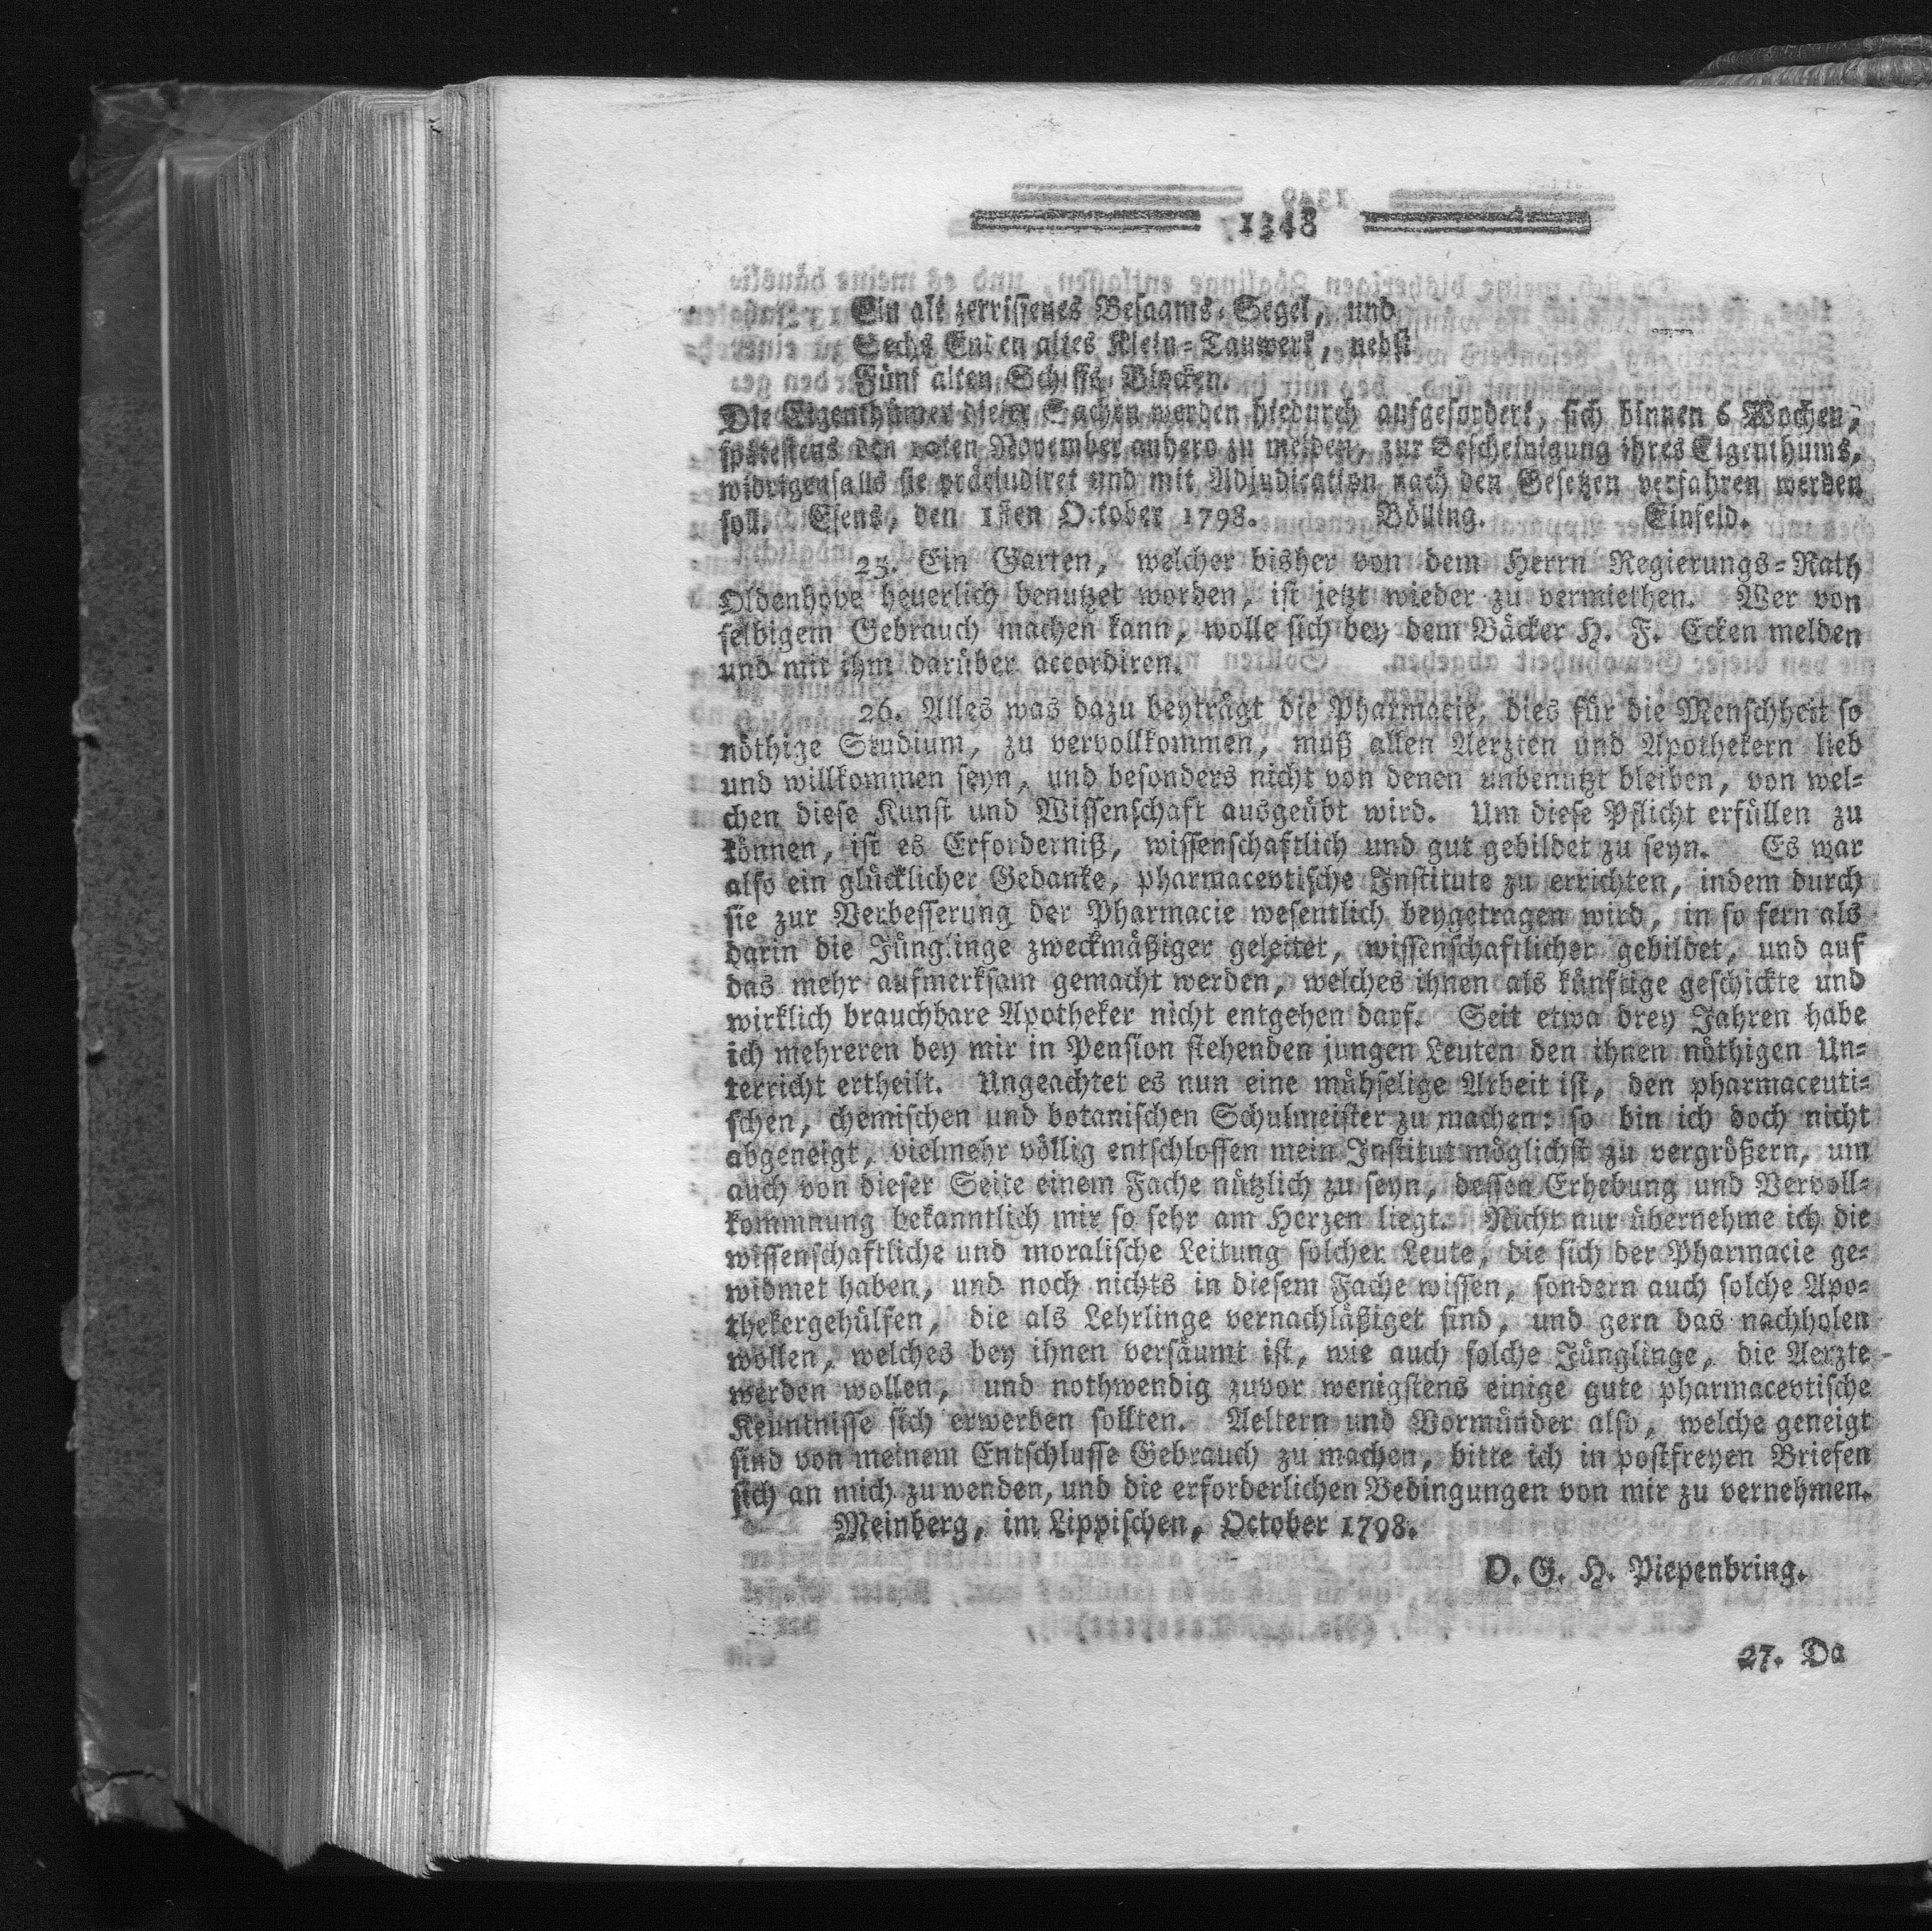 1348
Ein alt zerrissenes Besaams-Segel, und
Sechs Enden altes Klein-Tauwerk, nebst
Fünf alten Schiffs-Blocken.
Die Eigenthümer dieser Sachen werden hiedurch aufgefordert, sich binnen 6 Wochen,
spätestens den November anhero zu melden, zur Bescheinigung ihres Eigenthums,
widrigenfalls sie präcludiret und mit Adjudication nach den Gesetzen verfahren werden
soll. Esens, den 1sten October 1798. Bölling. Einfeld.
25. Ein Garten, welcher bisher von dem Herrn Regierungs-Rath
Oldenhove heuerlich benutzet worden, ist jetzt wieder zu vermiethen. Wer von
selbigem Gebrauch machen kann, wolle sich bey dem Bäcker H. F. Ecken melden
und mit ihm darüber accordiren.
26. Alles was dazu beyträgt die Pharmacie, dies für die Menschheit so
nöthige Studium, zu vervollkommen, muß allen Aerzten und Apothekern lieb
und willkommen seyn, und besonders nicht von denen unbenutzt bleiben, von wel-
chen diese Kunst und Wissenschaft ausgeübt wird. Um diese Pflicht erfüllen zu
können, ist es Erforderniß, wissenschaftlich und gut gebildet zu seyn. Es war
also ein glücklicher Gedanke, pharmacevtische Institute zu errichten, indem durch
sie zur Verbesserung der Pharmacie wesentlich beygetragen wird, in so fern als
darin die Jünglinge zweckmäßiger geleitet, wissenschaftlicher gebildet, und auf
das mehr aufmerksam gemacht werden, welches ihnen als künftige geschickte und
wirklich brauchbare Apotheker nicht entgehen darf. Seit etwa drey Jahren habe
ich mehreren bey mir in Pension stehenden jungen Leuten den ihnen nöthigen Un-
terricht ertheilt. Ungeachtet es nun eine mühselige Arbeit ist, den pharmaceuti-
schen, chemischen und botanischen Schulmeister zu machen: so bin ich doch nicht
abgeneigt, vielmehr völlig entschlossen mein Institut möglichst zu vergrößern, um
auch von dieser Seite einem Fache nützlich zu seyn, dessen Erhebung und Vervoll-
kommnung bekanntlich mir so sehr am Herzen liegt. Nicht nur übernehme ich die
wissenschaftliche und moralische Leitung solcher Leute, die sich der Pharmacie ge-
widmet haben, und noch nichts in diesem Fache wissen, sondern auch solche Apo-
thekergehülfen, die als Lehrlinge vernachläßiget sind, und gern das nachholen
wollen, welches bey ihnen versäumt ist, wie auch solche Jünglinge, die Aerzte
werden wollen, und nothwendig zuvor wenigstens einige gute pharmacevtische
Kenntnisse sich erwerben sollten. Aeltern und Vormünder also, welche geneigt
sind von meinem Entschlusse Gebrauch zu machen, bitte ich in postfreyen Briefen
sich an mich zu wenden, und die erforderlichen Bedingungen von mir zu vernehmen.
Meinberg, im Lippischen, October 1798.
D. G. H. Piepenbring.
27. Da